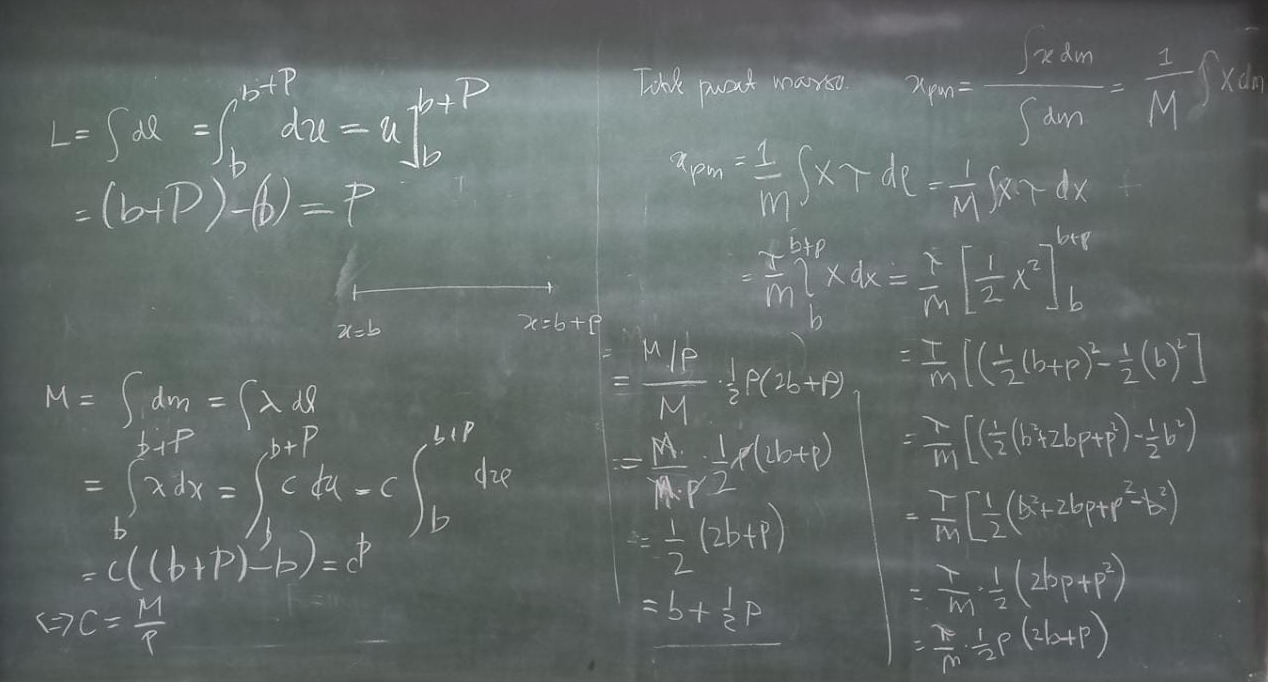 L = ∫ dl = ∫_b^{b+P} dx = x ]_b^{b+P}
= (b+P) - (b) = P
x=b x=b+p
M = ∫ dm = ∫ λ dl
= ∫_b^{b+P} λ dx = ∫_b^{b+P} c dx = c ∫_b^{b+P} dx
= c((b+P)-b) = cP
<=> C = M/P
Titik pusat massa. x_{pm} = ∫ x dm / ∫ dm = 1/M ∫ x dm
x_{pm} = 1/m ∫ x τ dl = 1/M ∫ x τ dx
= τ/m ∫_b^{b+p} x dx = τ/m [1/2 x²]_b^{b+p}
= τ/m [(1/2 (b+p)² - 1/2 (b)²]
= τ/m [(1/2 (b²+2bp+p²) - 1/2 b²)
= τ/m [1/2 (b²+2bp+p²-b²)
= τ/m · 1/2 (2bp+p²)
= τ/m · 1/2 p (2b+p)
= M/P / M · 1/2 P(2b+P)
= M/M·P · 1/2 P(2b+p)
= 1/2 (2b+p)
= b + 1/2 p